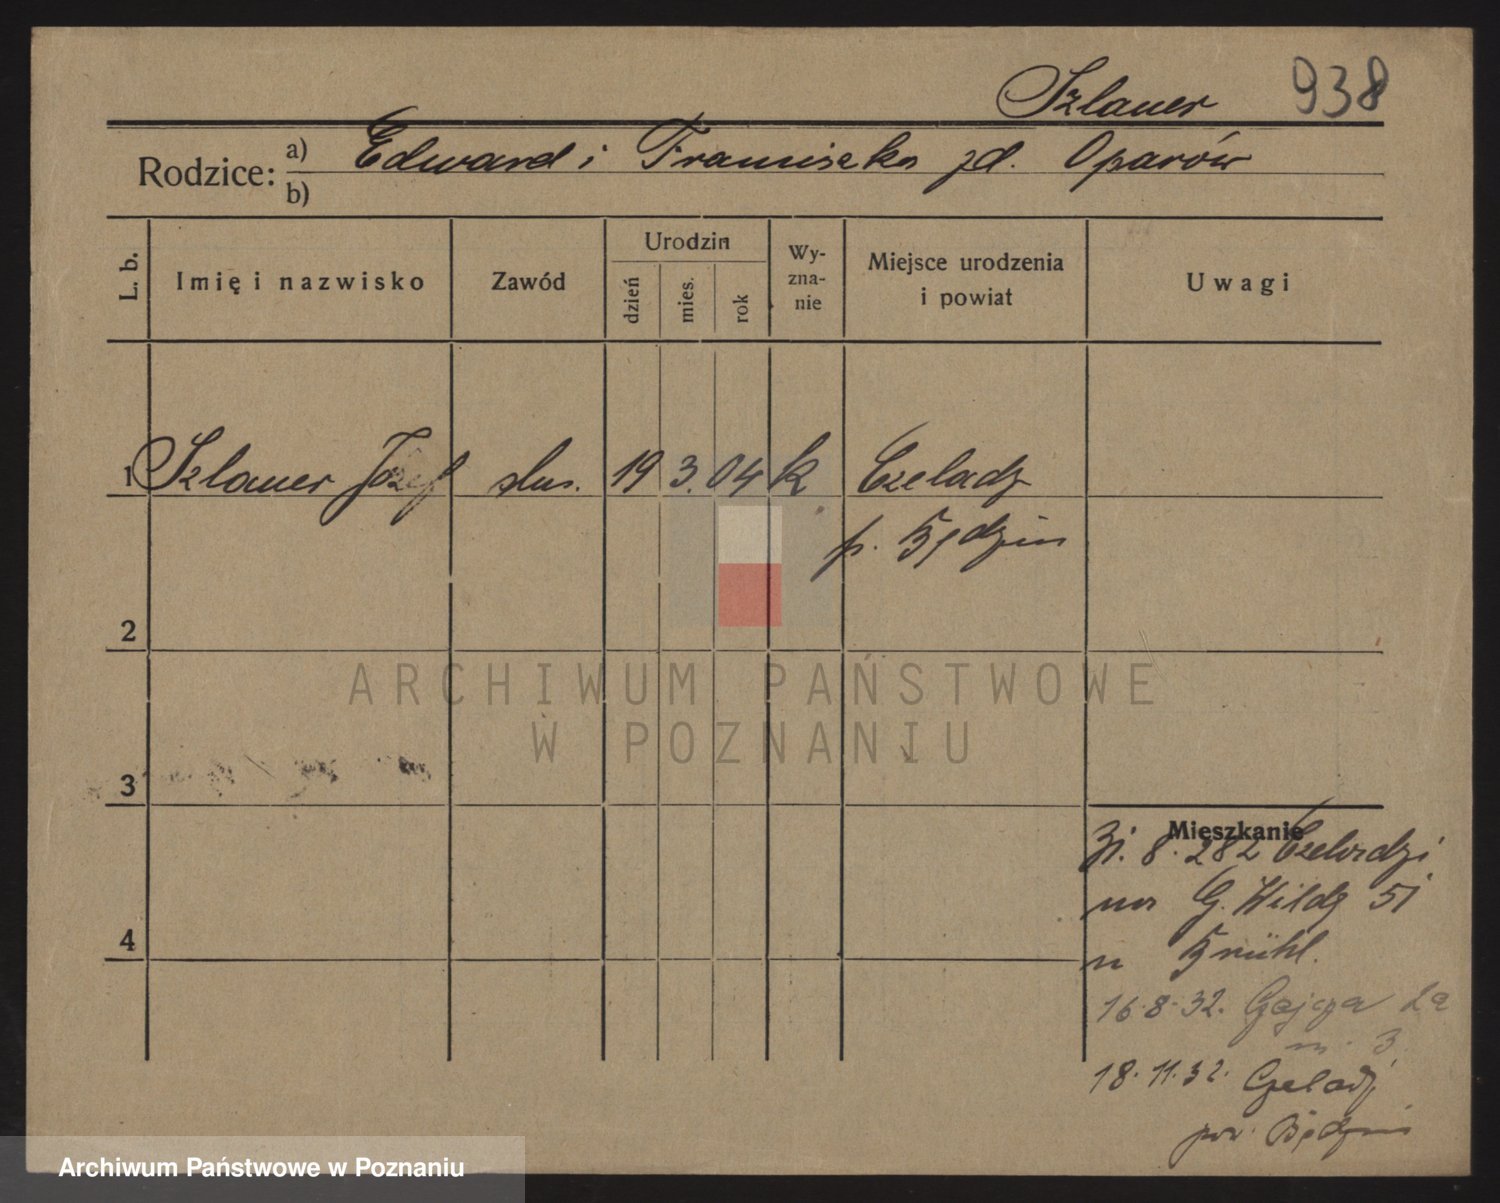 Szlauer 938
Rodzice: a) Edward i Franciszka zd. Oparów
b)
L. b.
Imię i nazwisko
Zawód
Urodzin
dzień
mies.
rok
Wy-
zna-
nie
Miejsce urodzenia
i powiat
Uwagi
1 Szlauer Józef slus. 19 3. 04 k Czeladz
p. Będzin
2
ARCHIWUM PAŃSTWOWE
W POZNANIU
3
Mieszkanie
8. Czeladzi
na G. Wildę 51
u Brühl.
16.8.32. Gajcza 2a
m. 3
18.11.32. Czeladź
pow. Będzin
4
Archiwum Państwowe w Poznaniu